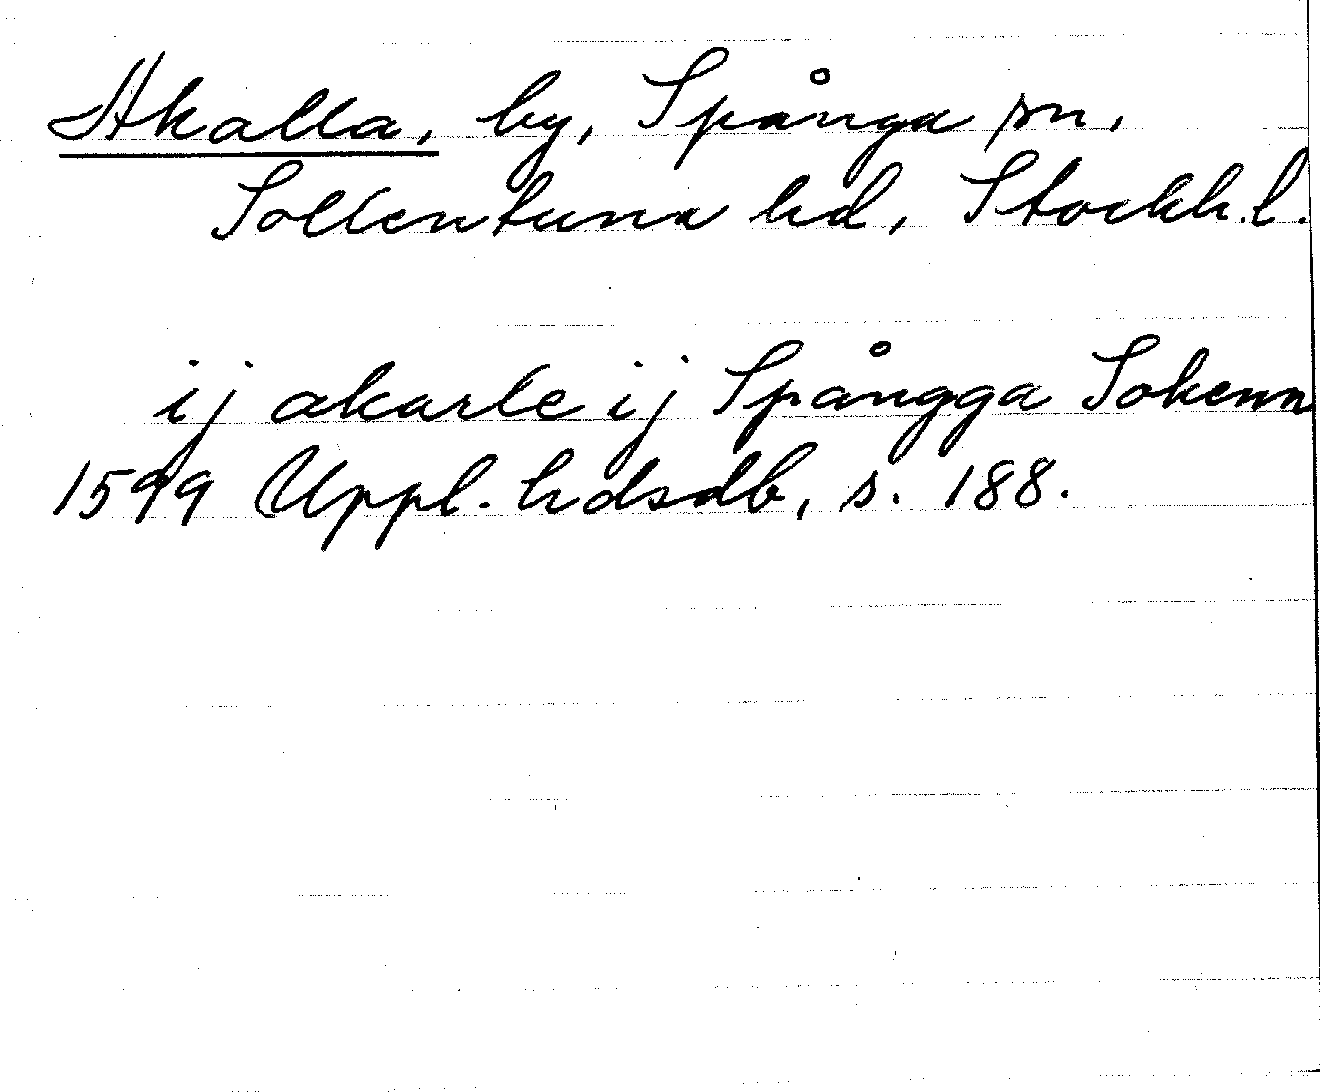 Akalla, by, Spånga sn,
Sollentuna hd, Stockh. l.
ij akarle ij Spångga Sokenn
1599 Uppl. hdsdb, s. 188.